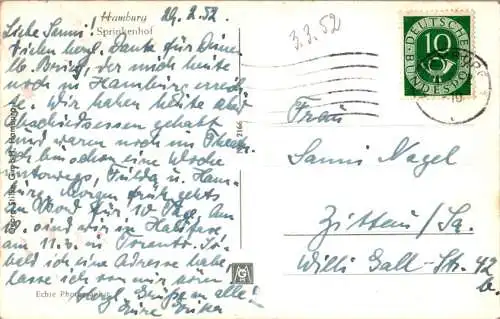 Hamburg
Sprinkenhof
29.2.52
3.3.52
Liebe Sanni!
Vielen herzl. Dank für Deinen
lb. Brief, der mich heute
noch in Hamburg erreich-
te. Wir haben heute Ab-
schiedsessen gehabt
und waren noch im Theater.
Ich bin schon eine Woche
unterwegs, Fulda u. Ham-
burg. Morgen früh gehts
an Bord für 10 Tge. Am
10. sind wir in Halifax,
am 11.3. in Toronto. So-
bald ich eine Adresse habe
lasse ich von mir hören
Herzl. Grüße an alle!
Eure Erika
Echte Photographie
2166
DEUTSCHE BUNDESPOST
10
Frau
Sanni Nagel
Zittau/Sa.
Willi Gall-Str. 42
b.